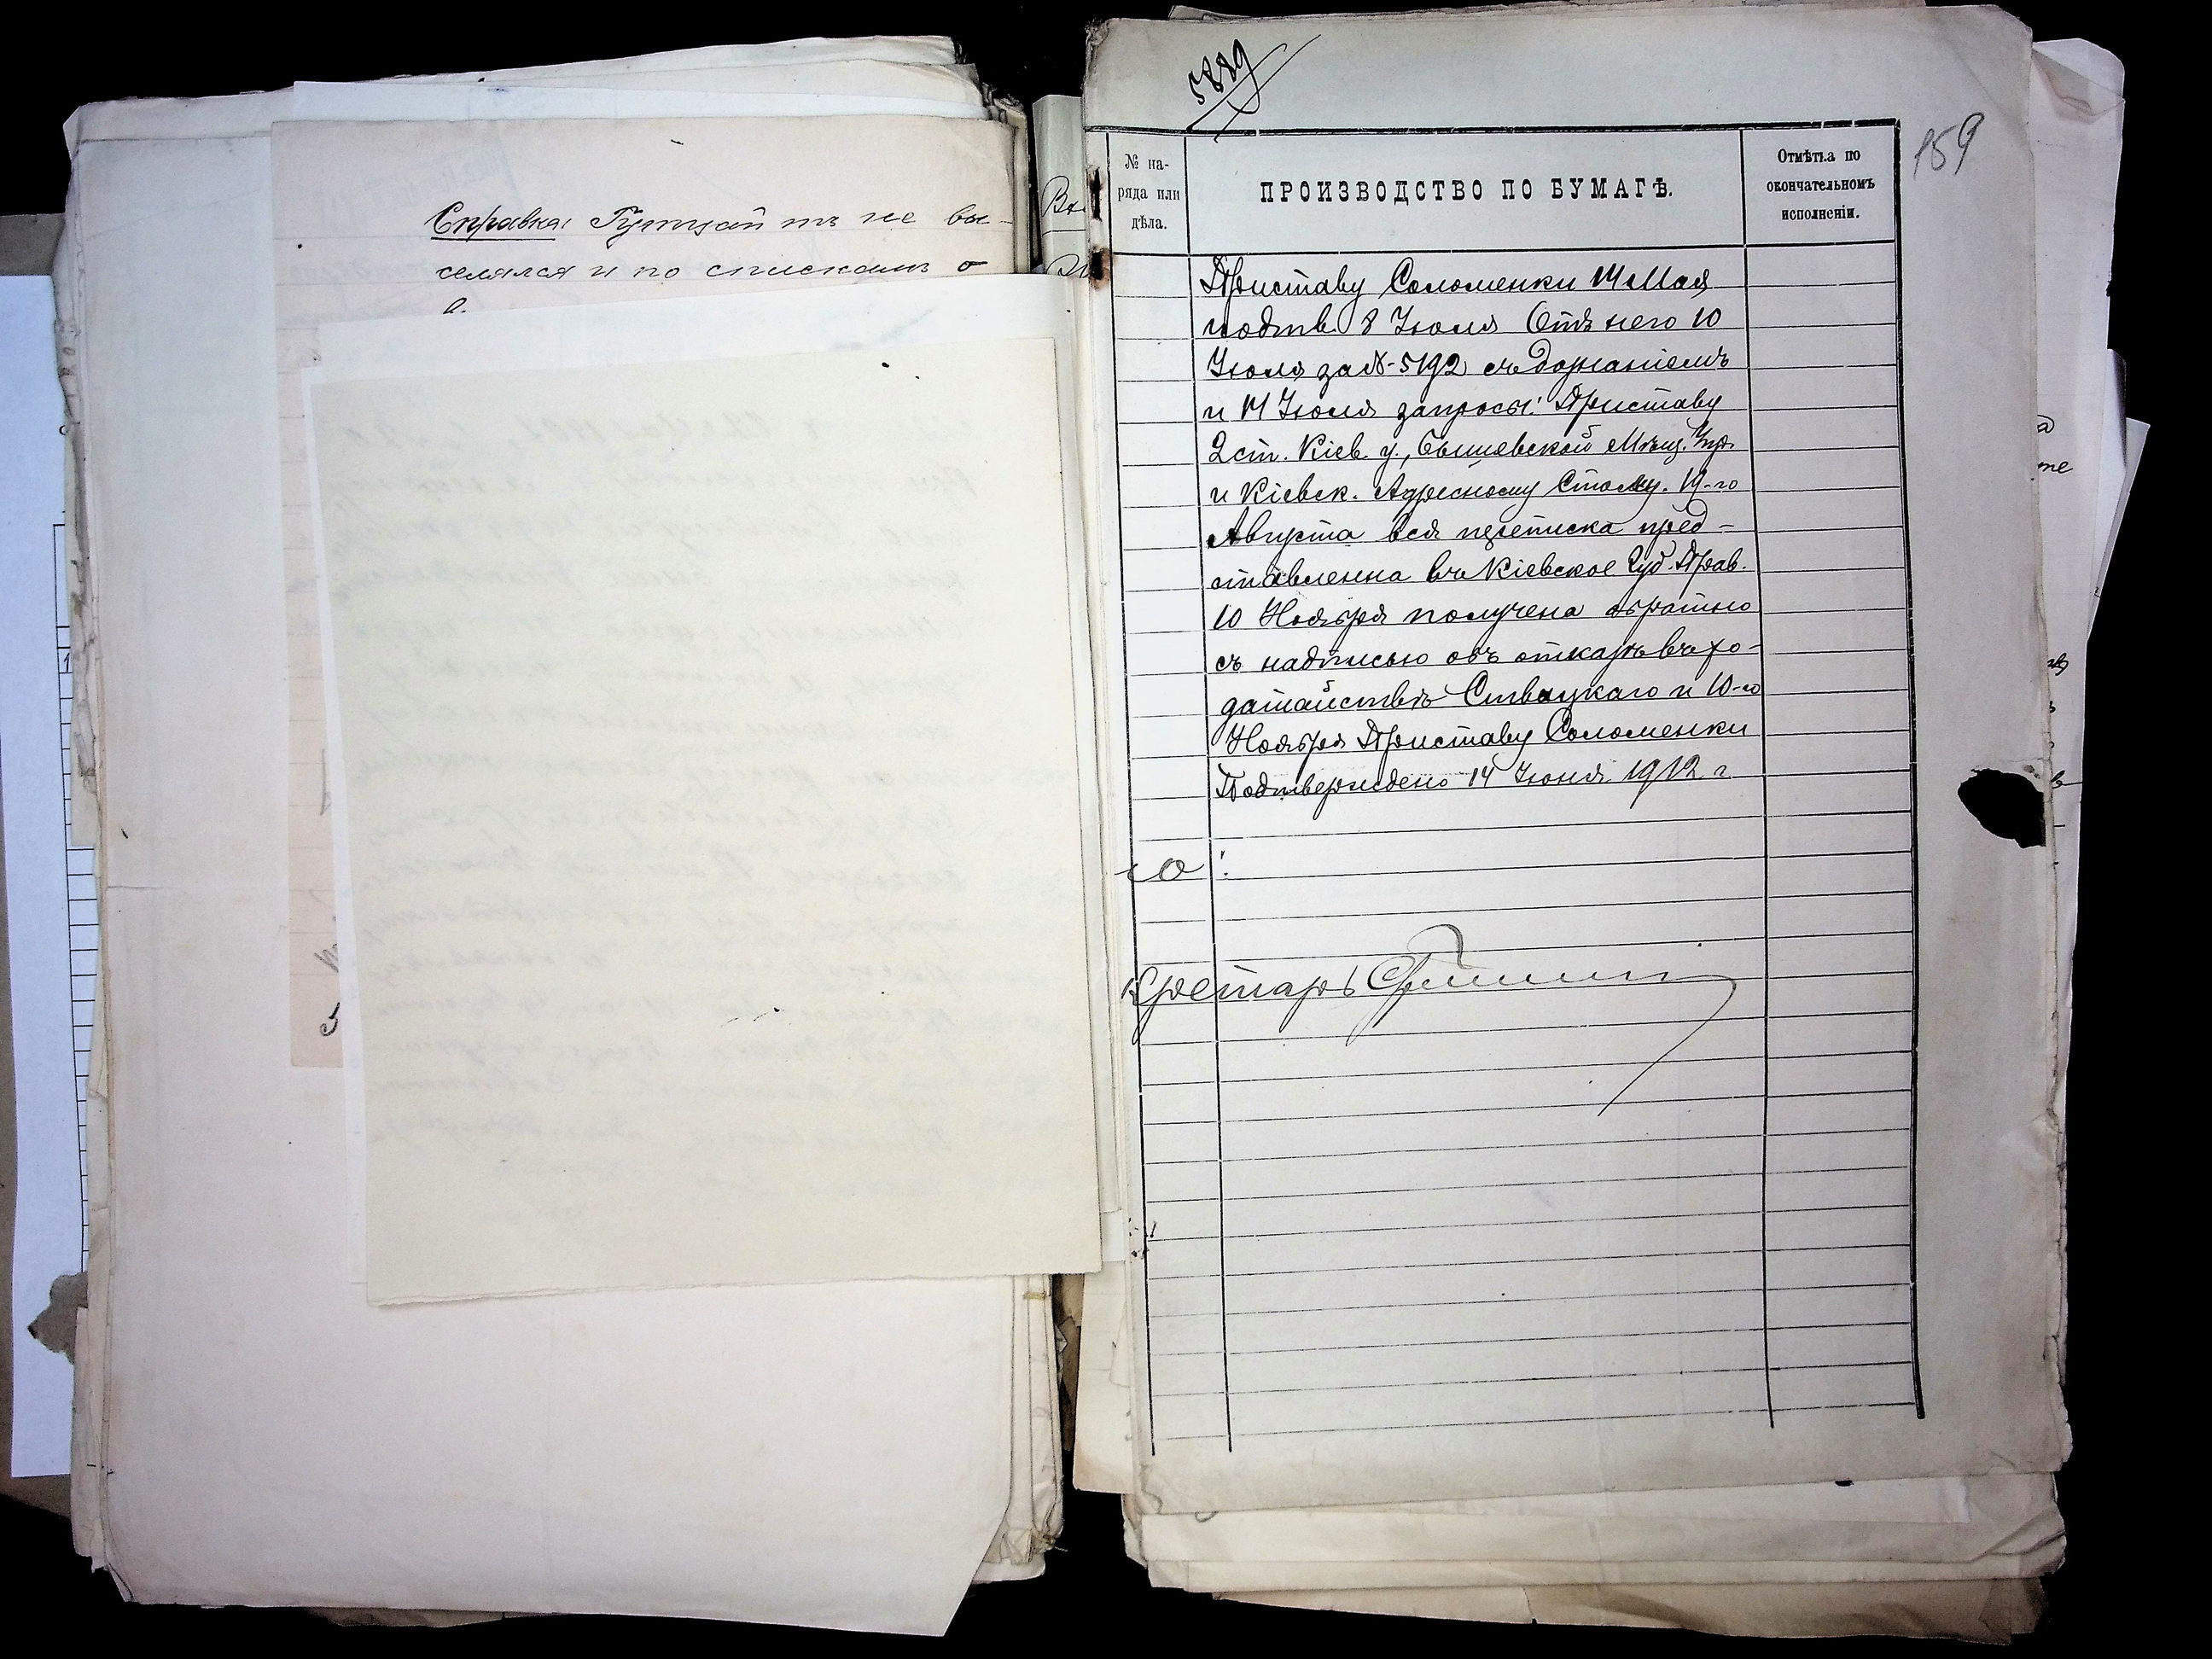 Справка: Гутцайтъ не вы-
селялся и по спискамъ о
5889
159
№ на-
ряда или
дѣла.
ПРОИЗВОДСТВО ПО БУМАГѢ.
Отмѣтка по
окончательномъ
исполненіи.
Приставу Соломенки 14 Мая
подтв. 8 Іюля Отъ него 10
Іюля за № 5192 съ дознаніемъ
и 14 Іюля запросы: Приставу
2 ст. Кіев. у., Бышевской Мѣщ. Упр.
и Кіевск. Адресному Столу. 19-го
Августа вся переписка пред-
ставленна въ Кіевское Губ. Прав.
10 Ноября получена обратно
съ надписью объ отказѣ въ хо-
датайствѣ Ствацкаго и 10-го
Ноября Приставу Соломенки
Подтверждено 14 Іюня 1912 г
но:
кретарь